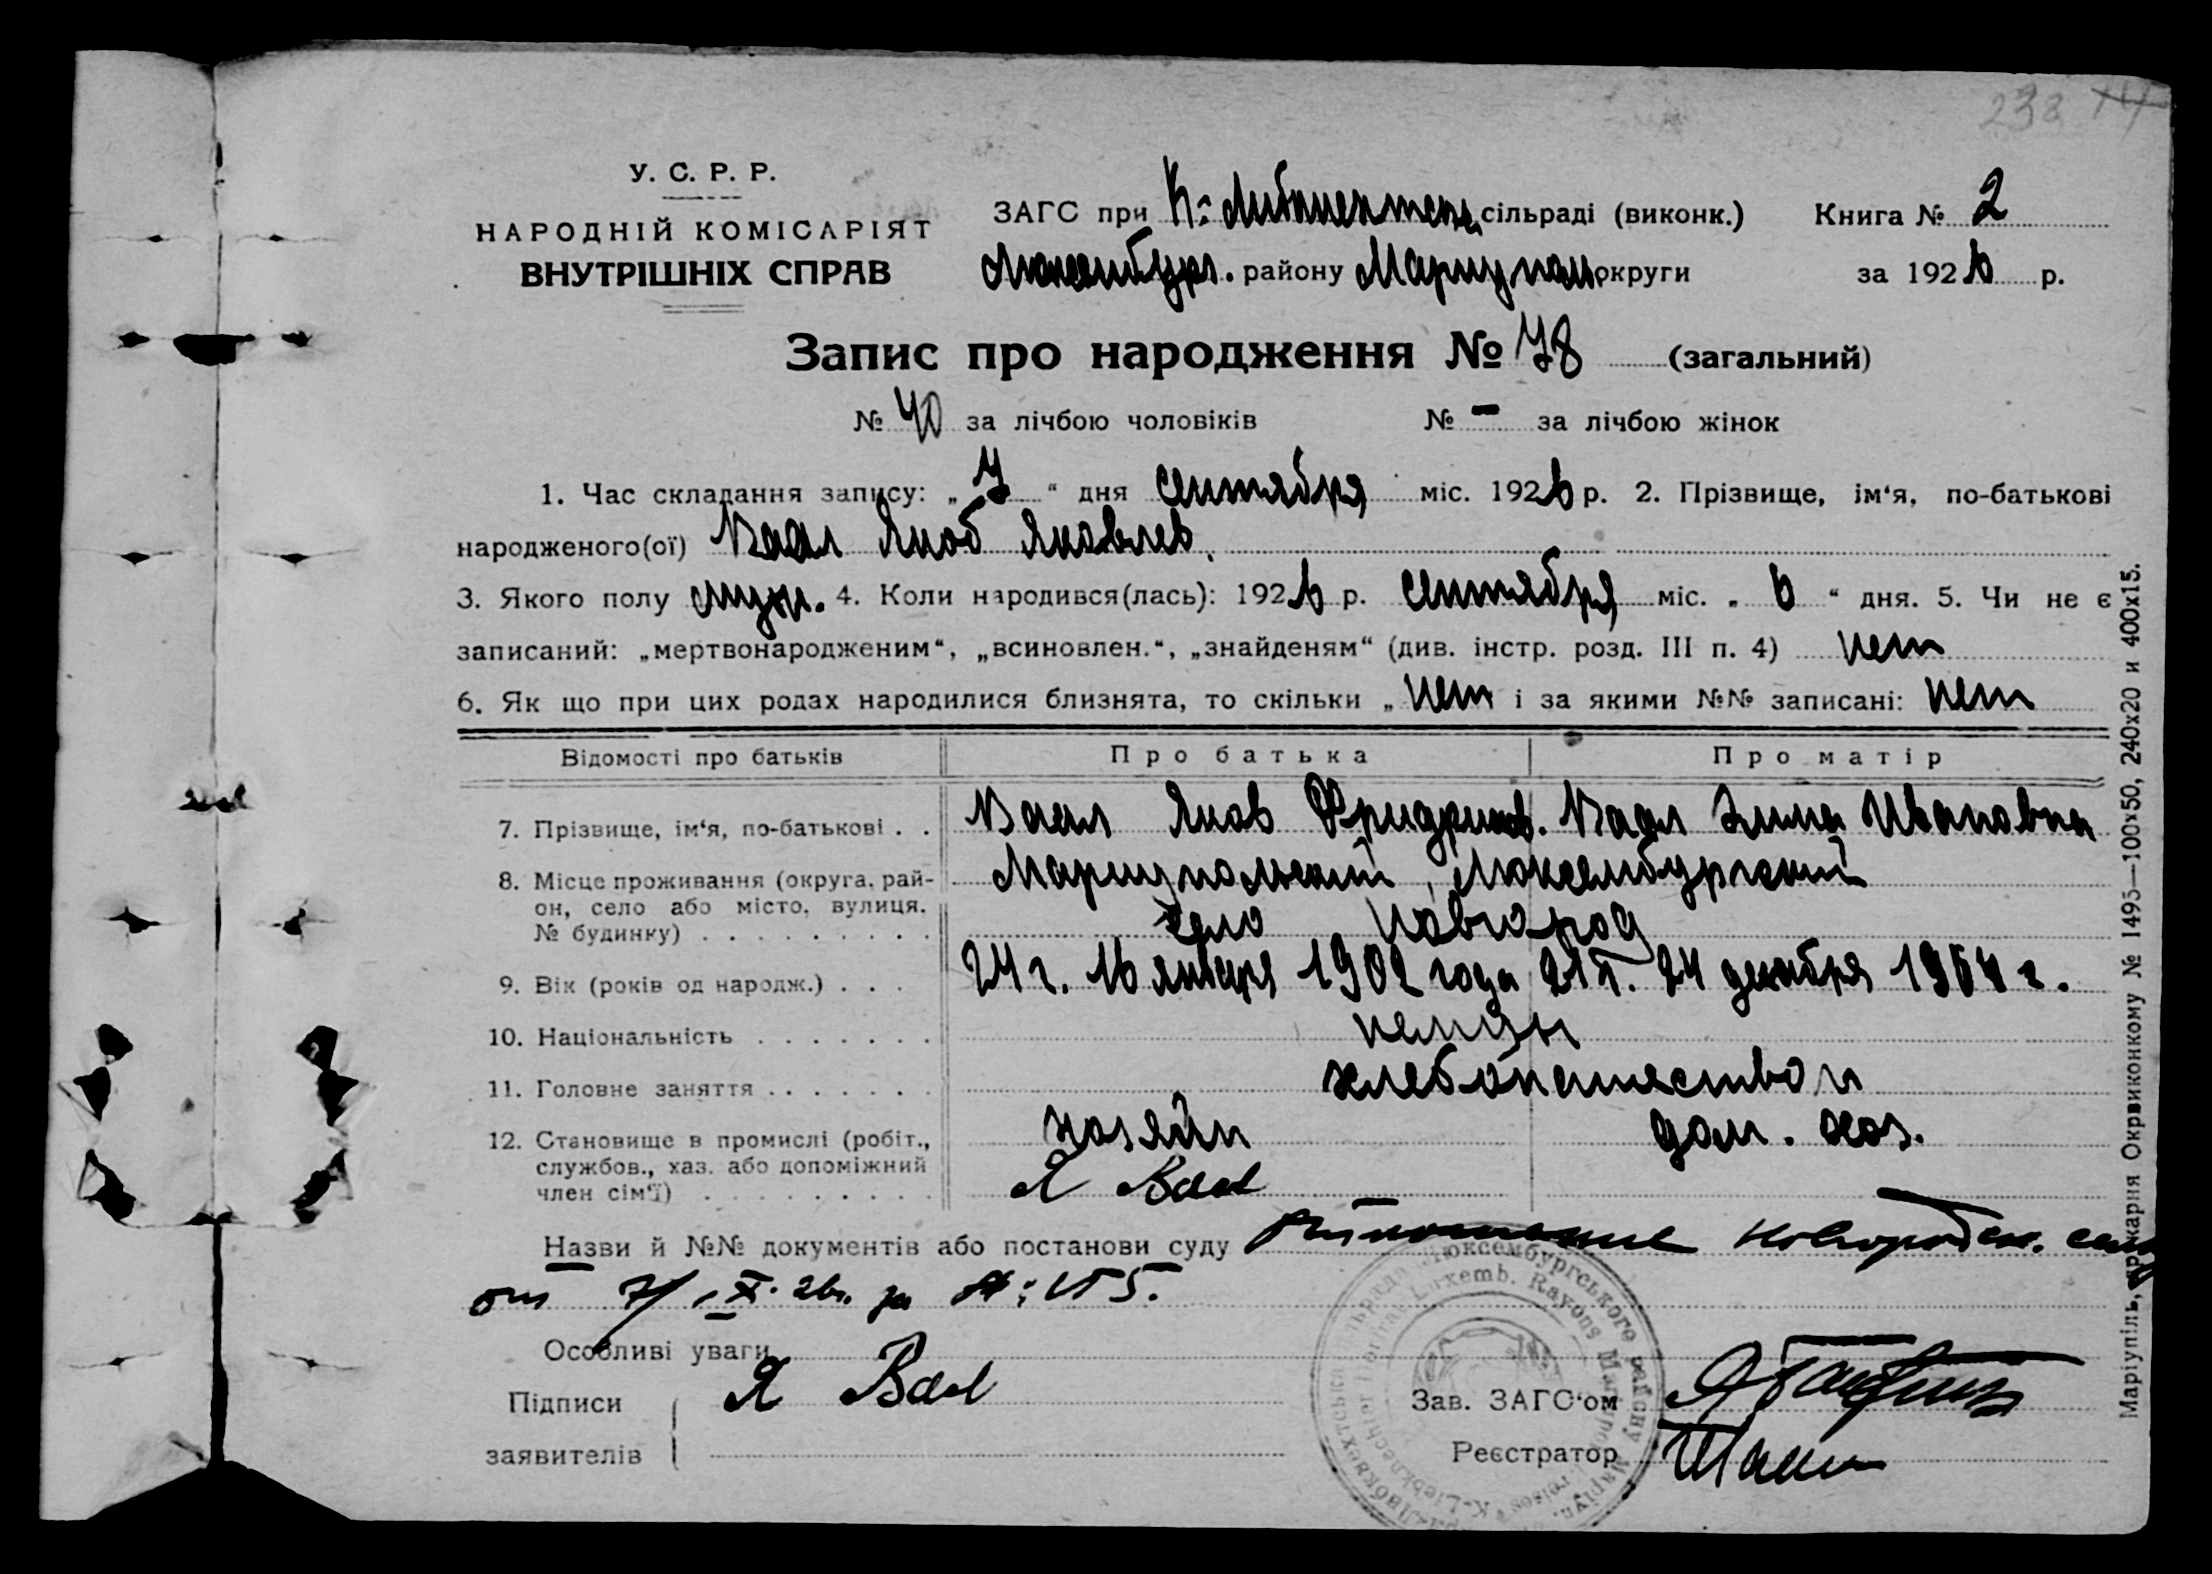 238
У. С. Р. Р.
НАРОДНІЙ КОМІСАРІЯТ
ВНУТРІШНІХ СПРАВ
ЗАГС при К: Либкнехтен сільраді (виконк.) Книга № 2
Люксембург. району Мариупол. округи за 1926 р.
Запис про народження № 78 (загальний)
№ 40 за лічбою чоловіків № — за лічбою жінок
1. Час складання запису: „7“ дня сентября міс. 1926 р. 2. Прізвище, ім‘я, по-батькові
народженого(ої) Ваал Якоб Яковлев.
3. Якого полу муж. 4. Коли народився(лась): 1926 р. сентября міс. „6“ дня. 5. Чи не є
записаний: „мертвонародженим“, „всиновлен.“, „знайденям“ (див. інстр. розд. III п. 4) нет
6. Як що при цих родах народилися близнята, то скільки „нет і за якими №№ записані: нет
Відомості про батьків Про батька Про матір
7. Прізвище, ім‘я, по-батькові . . Ваал Яков Фридрихов. Ваал Ивановна
8. Місце проживання (округа, рай-
он, село або місто, вулиця,
№ будинку) . . . . . . . . .
Мариупольский, Люксембургский
село Новгород
9. Вік (років од народж.) . . . 24 г. 16 января 1902 года 21 г. 24 декабря 1904 г.
10. Національність . . . . . . . немцы
11. Головне заняття . . . . . . . хлебопашеством
12. Становище в промислі (робіт.,
службов., хаз. або допоміжний
член сім‘ї) . . . . . . . . .
хозяин дом. хоз.
Я Ваal
Назви й №№ документів або постанови суду Отношение Новгородск.
от 7/IX.26г. за №:
Особливі уваги
Підписи
заявителів
Я Baal
Зав. ЗАГС‘ом
Реєстратор
Маріупіль, друкарня Окрвиконкому № 1495—100×50, 240х20 и 400х15.